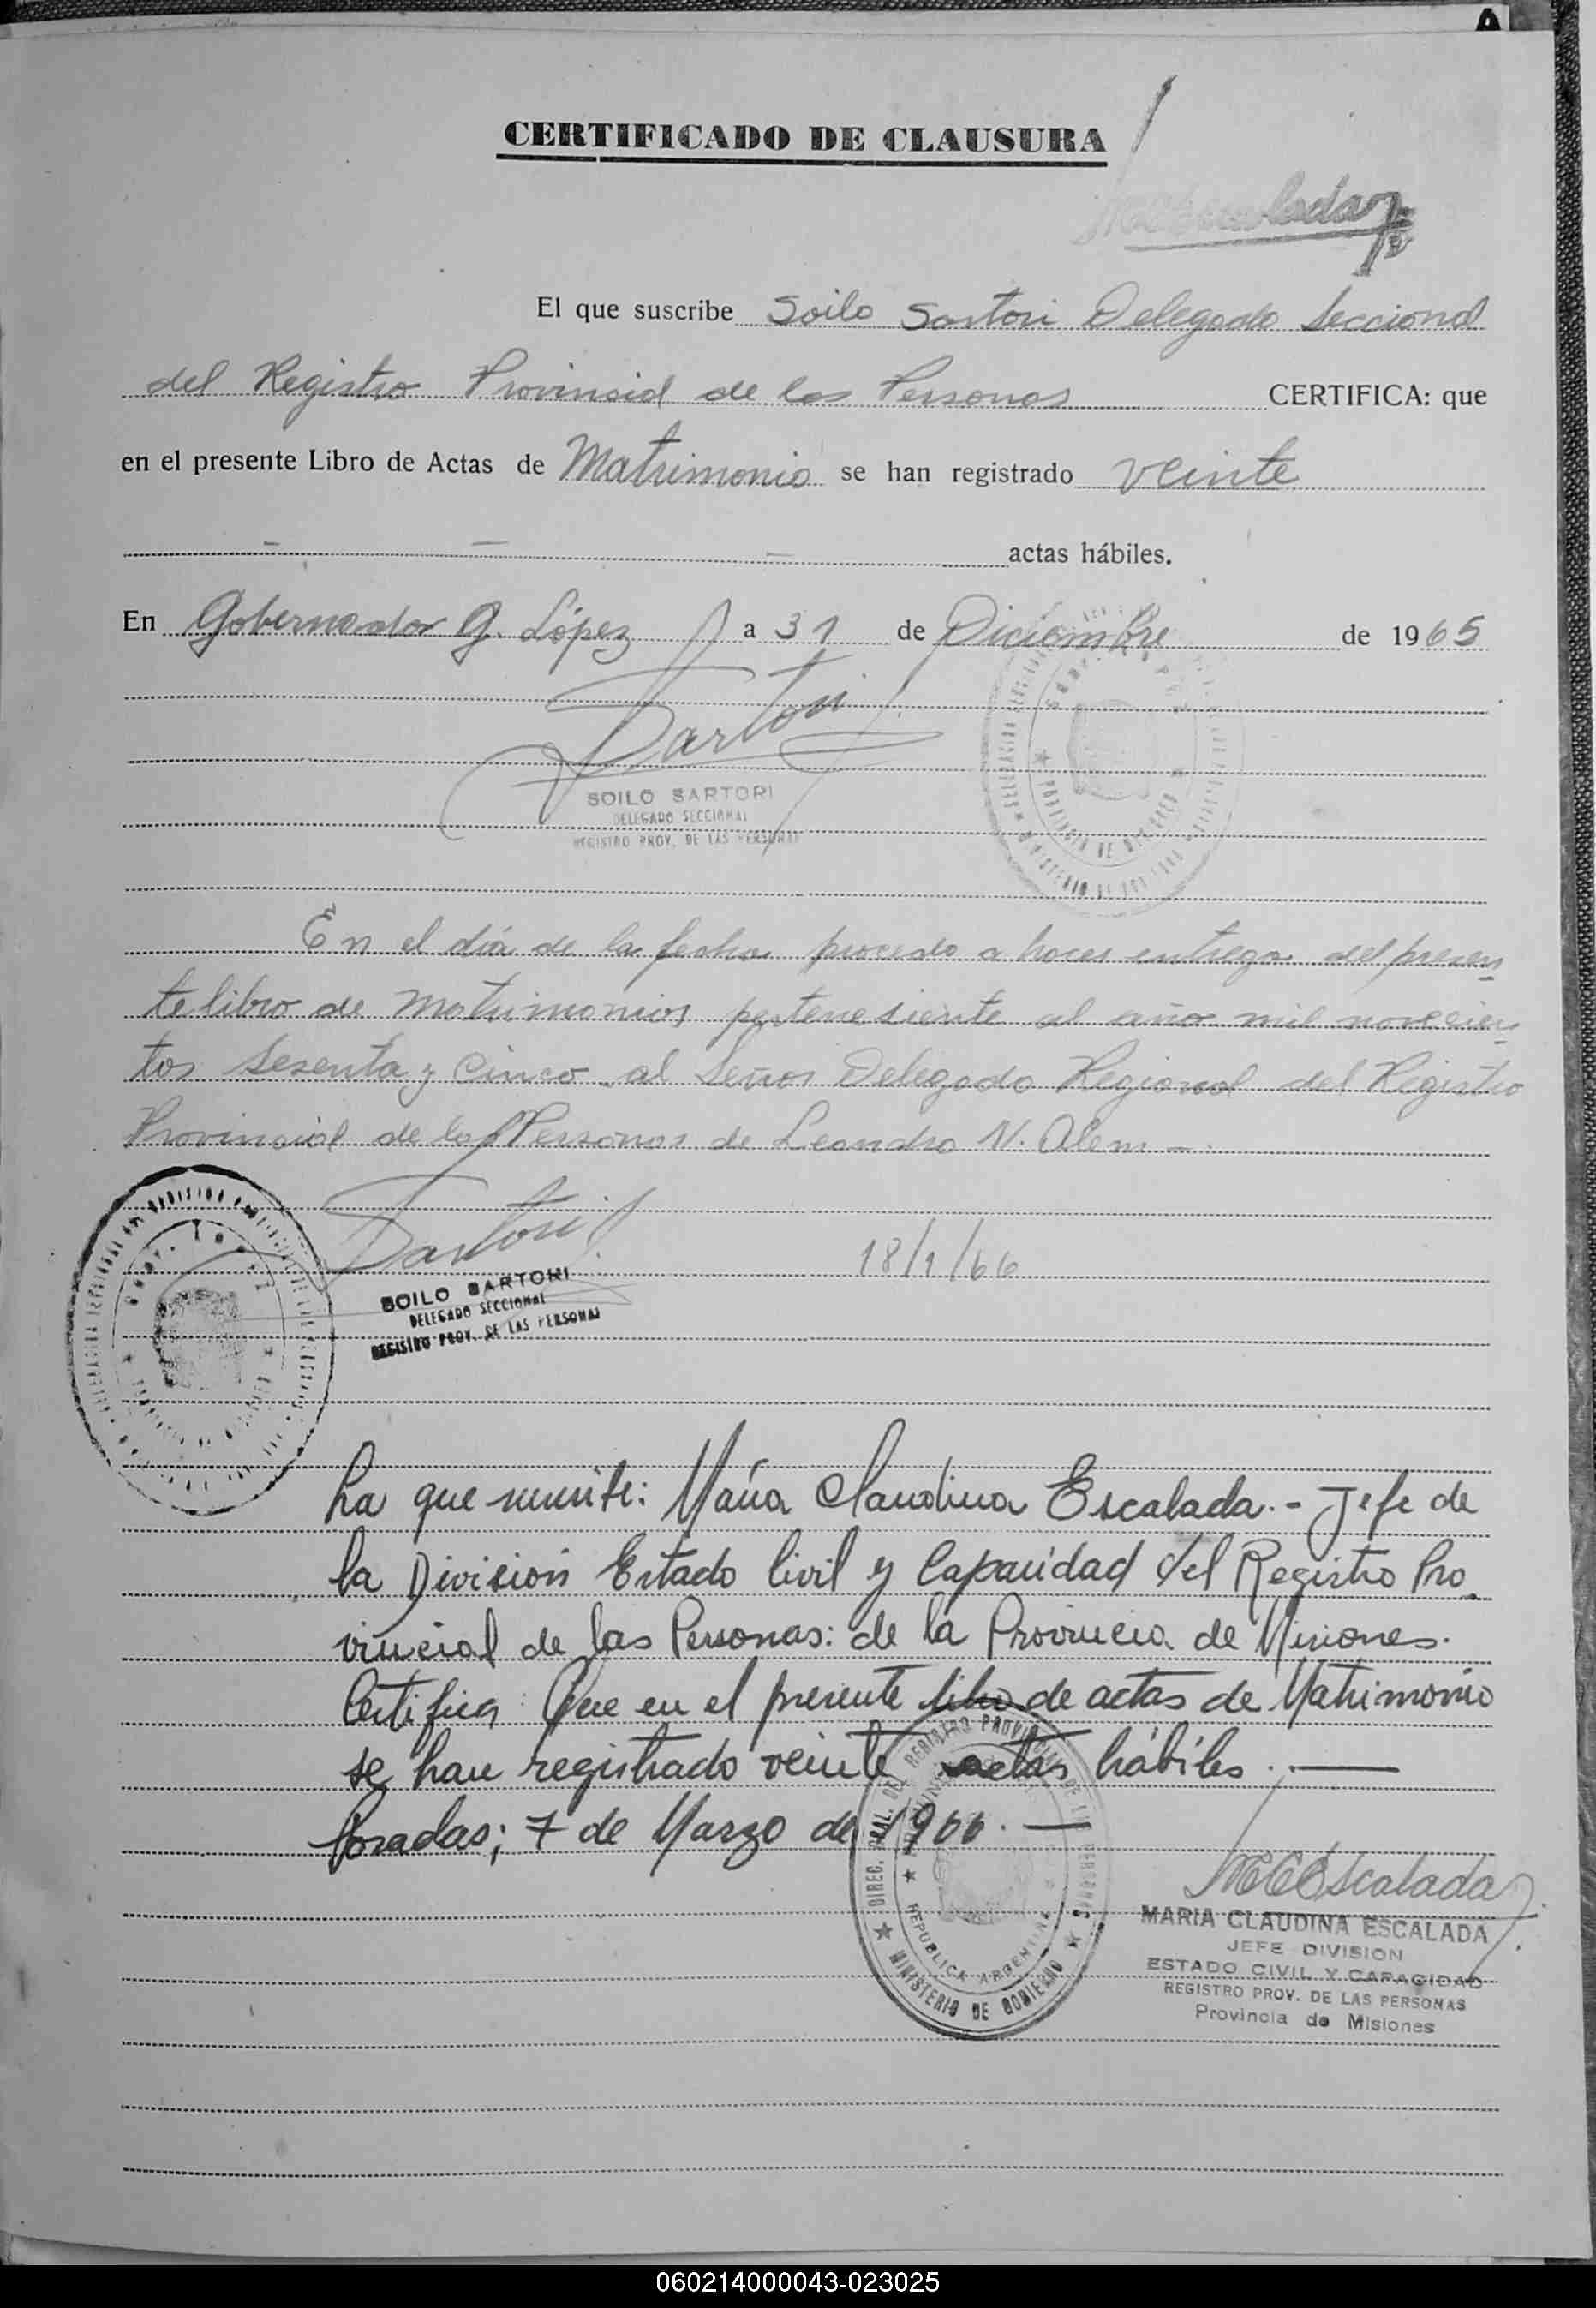 A
CERTIFICADO DE CLAUSURA
El que suscribe Soilo Sartori Delegado Seccional
del Registro Provincial de las Personas CERTIFICA: que
en el presente Libro de Actas de Matrimonio se han registrado veinte
— — — actas hábiles.
En Gobernador G. López a 31 de Diciembre de 1965
Sartori
SOILO SARTORI
DELEGADO SECCIONAL
REGISTRO PROV. DE LAS PERSONAS
PROVINCIA DE MISIONES
En el día de la fecha procedo a hacer entrega del presen
te libro de Matrimonios pertenesiente al año mil novecien
tos sesenta y cinco al Señor Delegado Regional del Registro
Provincial de las Personas de Leandro N. Alem —.
Sartori
18/1/66
SOILO SARTORI
DELEGADO SECCIONAL
REGISTRO PROV. DE LAS PERSONAS
La que suscribe: María Claudina Escalada.- Jefe de
la División Estado Civil y Capacidad del Registro Pro
vincial de las Personas: de la Provincia de Misiones.
Certifica: Que en el presente libro de actas de Matrimonio
se han registrado veinte actas hábiles. —
Posadas; 7 de Marzo de 1966. —
DIREC. GRAL. DEL REGISTRO PROVINCIAL DE LAS PERSONAS
REPUBLICA ARGENTINA
MINISTERIO DE GOBIERNO
MCEscalada
MARIA CLAUDINA ESCALADA
JEFE DIVISION
ESTADO CIVIL Y CAPACIDAD
REGISTRO PROV. DE LAS PERSONAS
Provincia de Misiones
060214000043-023025